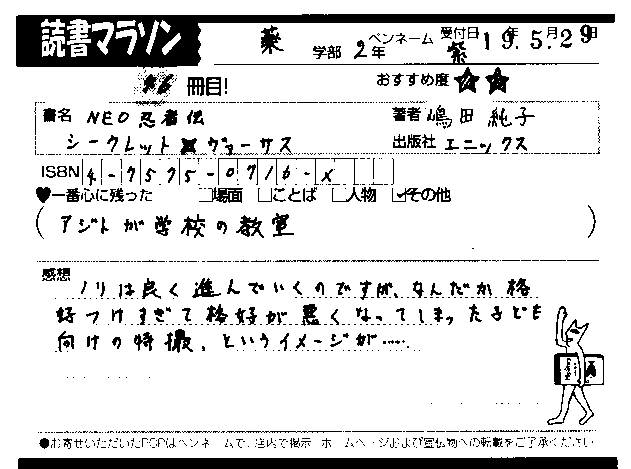 読書マラソン 薬 学部 2年 ペンネーム 紫 受付日 19年5月29日
冊目! おすすめ度 ☆☆
書名 NEO忍者伝 著者 嶋田純子
シークレット ヴァーサス 出版社 エニックス
ISBN 4-7575-0716-X
♥一番心に残った □場面 □ことば □人物 ☑その他
(アジトが学校の教室)
感想
ノリは良く進んでいくのですが、なんだか格
好つけすぎて格好が悪くなってしまった子ども
向けの特撮、というイメージが……
●お寄せいただいたPOPはペンネームで、店内で掲示 ホームページおよび宣伝物への転載をご了承ください